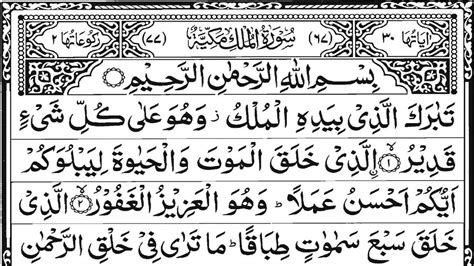 اٰیَاتُهَا ٣٠ (٦٧) سُوْرَةُ الْمُلْكِ مَكِّيَّةٌ (٧٧) رُكُوْعَاتُهَا ٢
بِسْمِ اللّٰهِ الرَّحْمٰنِ الرَّحِيْمِ
تَبٰرَكَ الَّذِيْ بِيَدِهِ الْمُلْكُ ز وَهُوَ عَلٰى كُلِّ شَيْءٍ
قَدِيْرُ ۙ﴿١﴾ الَّذِيْ خَلَقَ الْمَوْتَ وَالْحَيٰوةَ لِيَبْلُوَكُمْ
اَيُّكُمْ اَحْسَنُ عَمَلًا ؕ وَهُوَ الْعَزِيْزُ الْغَفُوْرُ ۙ﴿٢﴾ الَّذِيْ
خَلَقَ سَبْعَ سَمٰوٰتٍ طِبَاقًا ؕ مَا تَرٰى فِيْ خَلْقِ الرَّحْمٰنِ